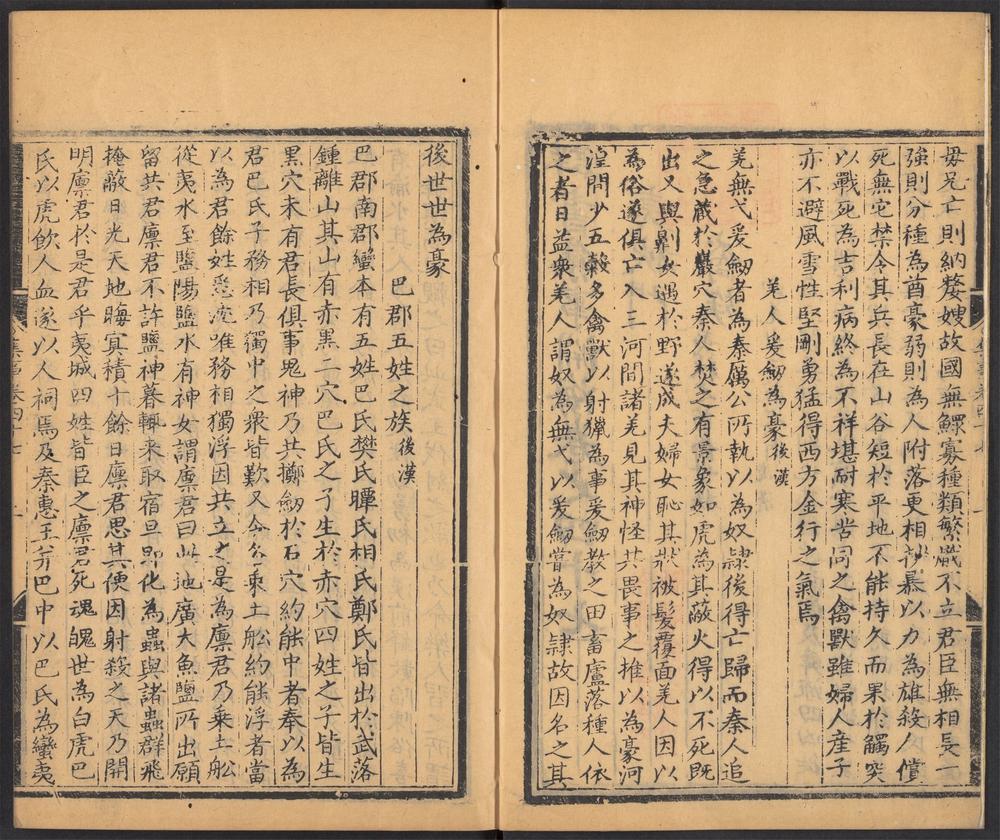 毋兄亡則納嫠嫂故國無鰥寡種類繁熾不立君臣無相長一
強則分種為酋豪弱則為人附落更相抄暴以力為雄殺人償
死無它禁令其兵長在山谷短於平地不能持久而果於觸突
以戰死為吉利病終為不祥堪耐寒苦同之禽獸雖婦人產子
亦不避風雪性堅剛勇猛得西方金行之氣焉
羌人爰劒為豪後漢
羌無弋爰劒者為秦厲公所執以為奴隷後得亡歸而秦人追
之急藏於巖穴秦人焚之有景象如虎為其蔽火得以不死既
出又與劓女遇於野遂成夫婦女恥其狀被髮覆面羌人因以
為俗遂俱亡入三河間諸羌見其神怪共畏事之推以為豪河
湟間少五穀多禽獸以射獵為事爰劒教之田畜廬落種人依
之者日益衆羌人謂奴為無弋以爰劒嘗為奴隷故因名之其
後世世為豪
巴郡五姓之族後漢
巴郡南郡蠻本有五姓巴氏樊氏瞫氏相氏鄭氏皆出於武落
鍾離山其山有赤黑二穴巴氏之子生於赤穴四姓之子皆生
黑穴未有君長俱事鬼神乃共擲劒於石穴約能中者奉以為
君巴氏子務相乃獨中之衆皆歎又令各乘土船約能浮者當
以為君餘姓悉沈唯務相獨浮因共立之是為廩君乃乘土船
從夷水至鹽陽鹽水有神女謂廩君曰此地廣大魚鹽所出願
留共君廩君不許鹽神暮輒来取宿旦即化為蟲與諸蟲群飛
掩蔽日光天地晦冥積十餘日廩君思其便因射殺之天乃開
明廩君於是君乎夷城四姓皆臣之廩君死魂魄世為白虎巴
氏以虎飲人血遂以人祠焉及秦惠王并巴中以巴氏為蠻夷